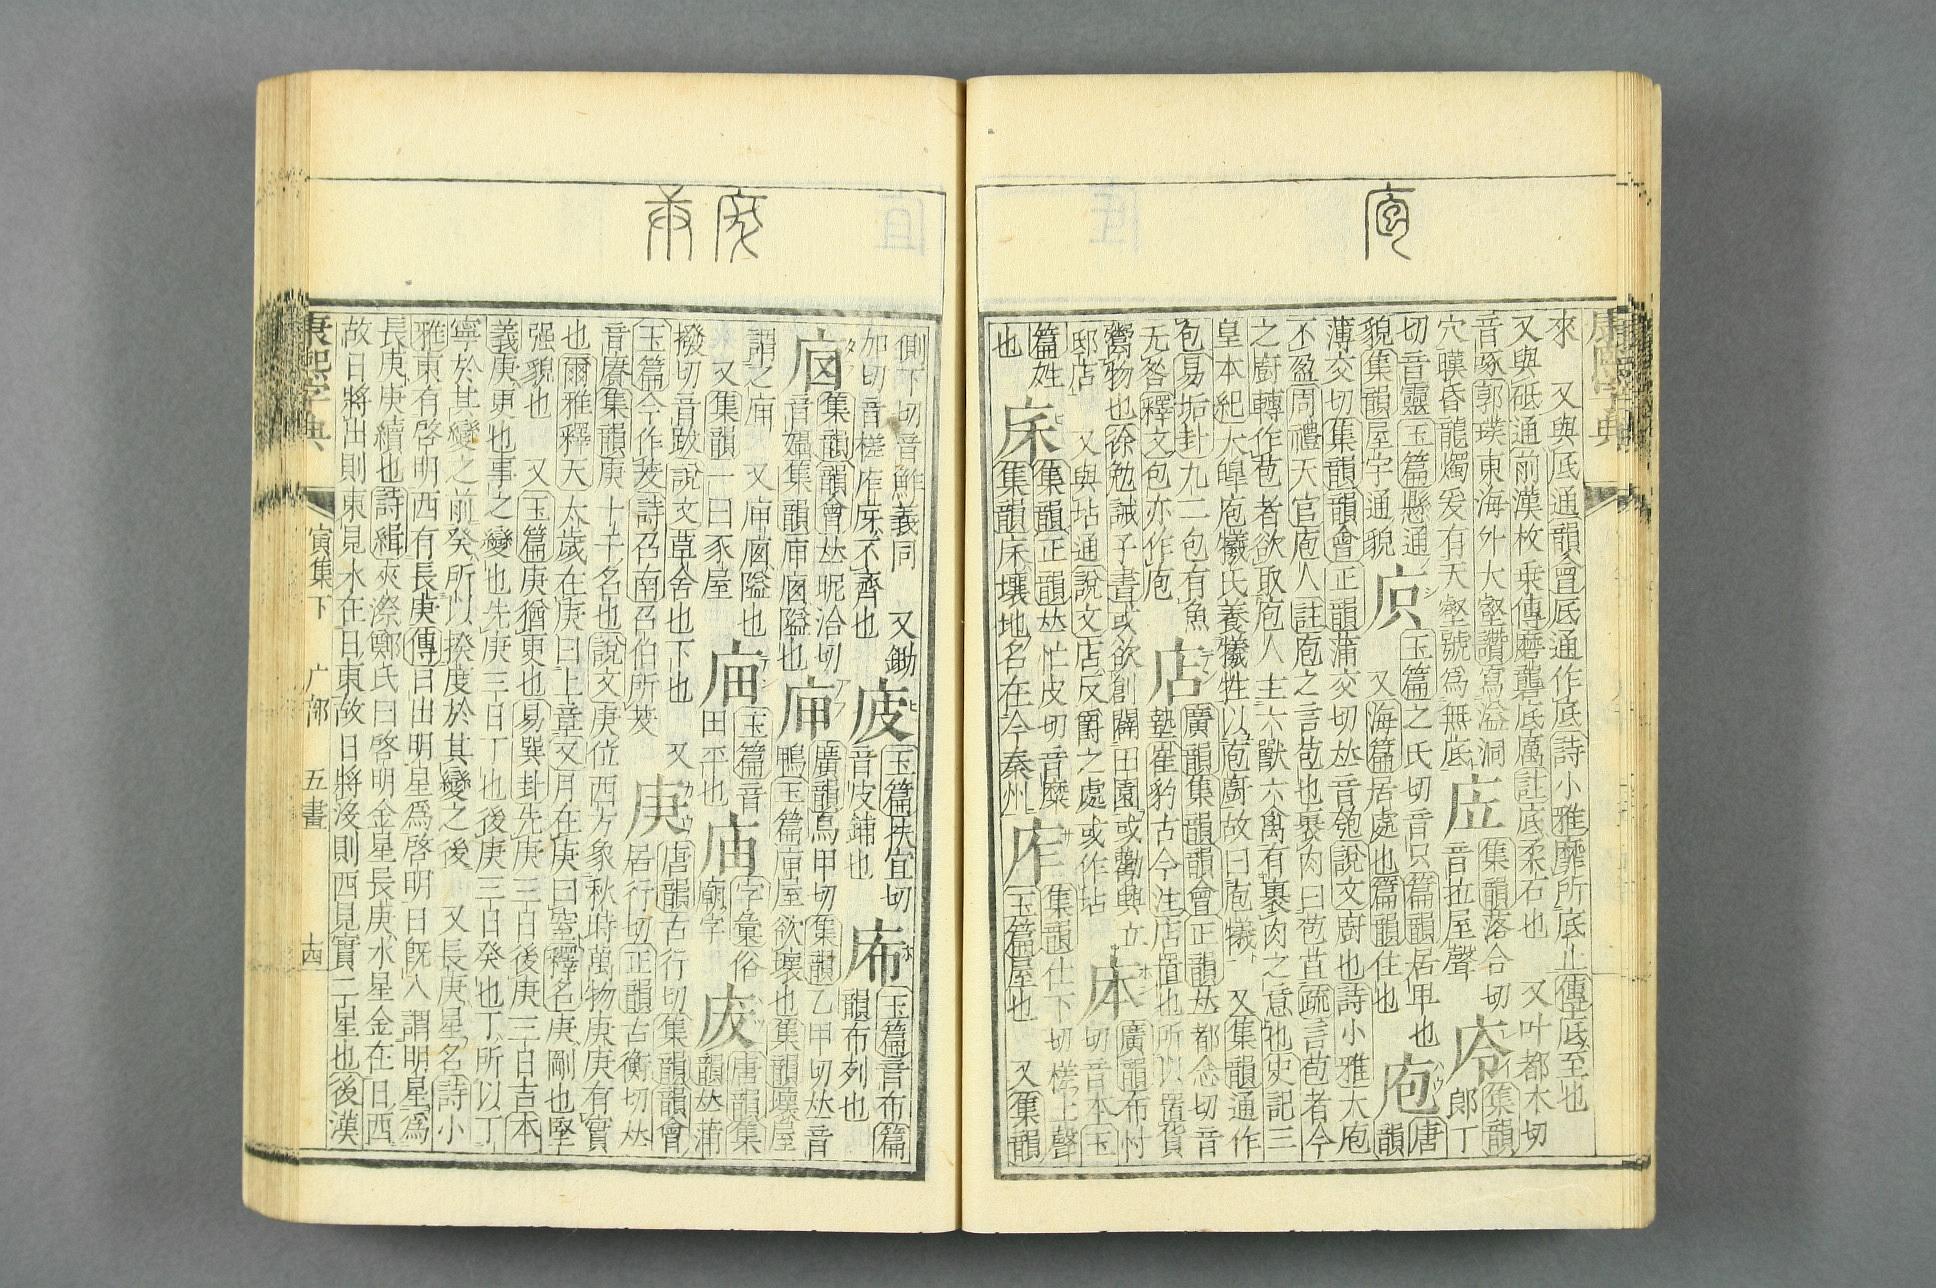 來　又與厎通韻會底通作厎詩小雅靡所厎止傳厎至也
又與砥通前漢枚乗傳磨礱底厲註底柔石也　又叶都木切
音啄郭璞東海外大壑讚寫溢洞
穴暵昏龍燭爰有天壑號爲無底
㕇集韻落合切音拉屋聲
㡵集韻郎丁
切音靈玉篇懸通
貌集韻屋宇通貌
㡳玉篇之氏切音只篇韻居甲也
又海篇居處也篇韻住也
庖唐韻
薄交切集韻韻會正韻蒲交切𠀤音匏說文廚也詩小雅大庖
不盈周禮天官庖人註庖之言苞也褁肉曰苞苴疏言苞者今
之廚轉作苞者欲取庖人主六獸六禽有裹肉之意也史記三
皇本紀大皥庖犧氏養犧牲以庖廚故曰庖犧　又集韻通作
包易垢卦九二包有魚
无咎釋文包亦作庖
店廣韻集韻韻會正韻𠀤都念切音
墊崔豹古今注店置也所以置貨
鬻物也徐勉誡子書或欲創闢田園或勸興立
邸店　又與坫通說文店反爵之處或作坫
床廣韻布忖
切音本玉
篇姓
也
㡻集韻正韻𠀤忙皮切音糜
集韻㡻壤地名在今秦州
㡸集韻仕下切槎上聲
玉篇屋也　又集韻
側下切音鮓義同　又鋤
加切音槎㡸庌不齊也
㢏玉篇扶宜切
音皮鋪也
㡱玉篇音布篇
韻布列也
㡬集韻韻會𠀤昵洽切
音𡇒集韻庘㡬隘也
庘廣韻烏甲切集韻乙甲切𠀤音
鴨玉篇庘屋欲壞也集韻壞屋
謂之庘　又庘㡬隘也
又集韻一曰豕屋
㡹玉篇音
田平也
庙字彙俗
廟字
废唐韻集
韻𠀤蒲
撥切音跋說文草舍也下也
玉篇今作茇詩召南召伯所茇
又
庚唐韻古行切集韻韻會
居行切正韻古衡切𠀤
音賡集韻庚十干名也說文庚位西方象秋時萬物庚庚有實
也爾雅釋天太歲在庚曰上章又月在庚曰窒釋名庚剛也堅
强貌也　又玉篇庚猶更也易巽卦先庚三日後庚三日吉本
義庚更也事之變也先庚三日丁也後庚三日癸也丁所以丁
寧於其變之前癸所以揆度於其變之後　又長庚星名詩小
雅東有啓明西有長庚傳日出明星爲啓明日旣入謂明星爲
長庚庚續也詩緝夾漈鄭氏曰啓明金星長庚水星金在日西
故日將出則東見水在日東故日將沒則西見實二星也後漢
康熙字典
寅集下　广部　五畫　十四